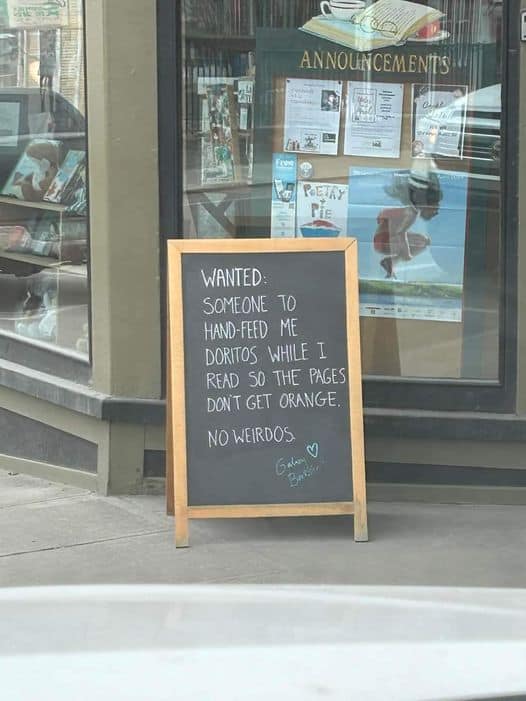 ANNOUNCEMENTS
Free
POETRY
+
PIE
WANTED:
SOMEONE TO
HAND-FEED ME
DORITOS WHILE I
READ SO THE PAGES
DON'T GET ORANGE.
NO WEIRDOS.
Galaxy